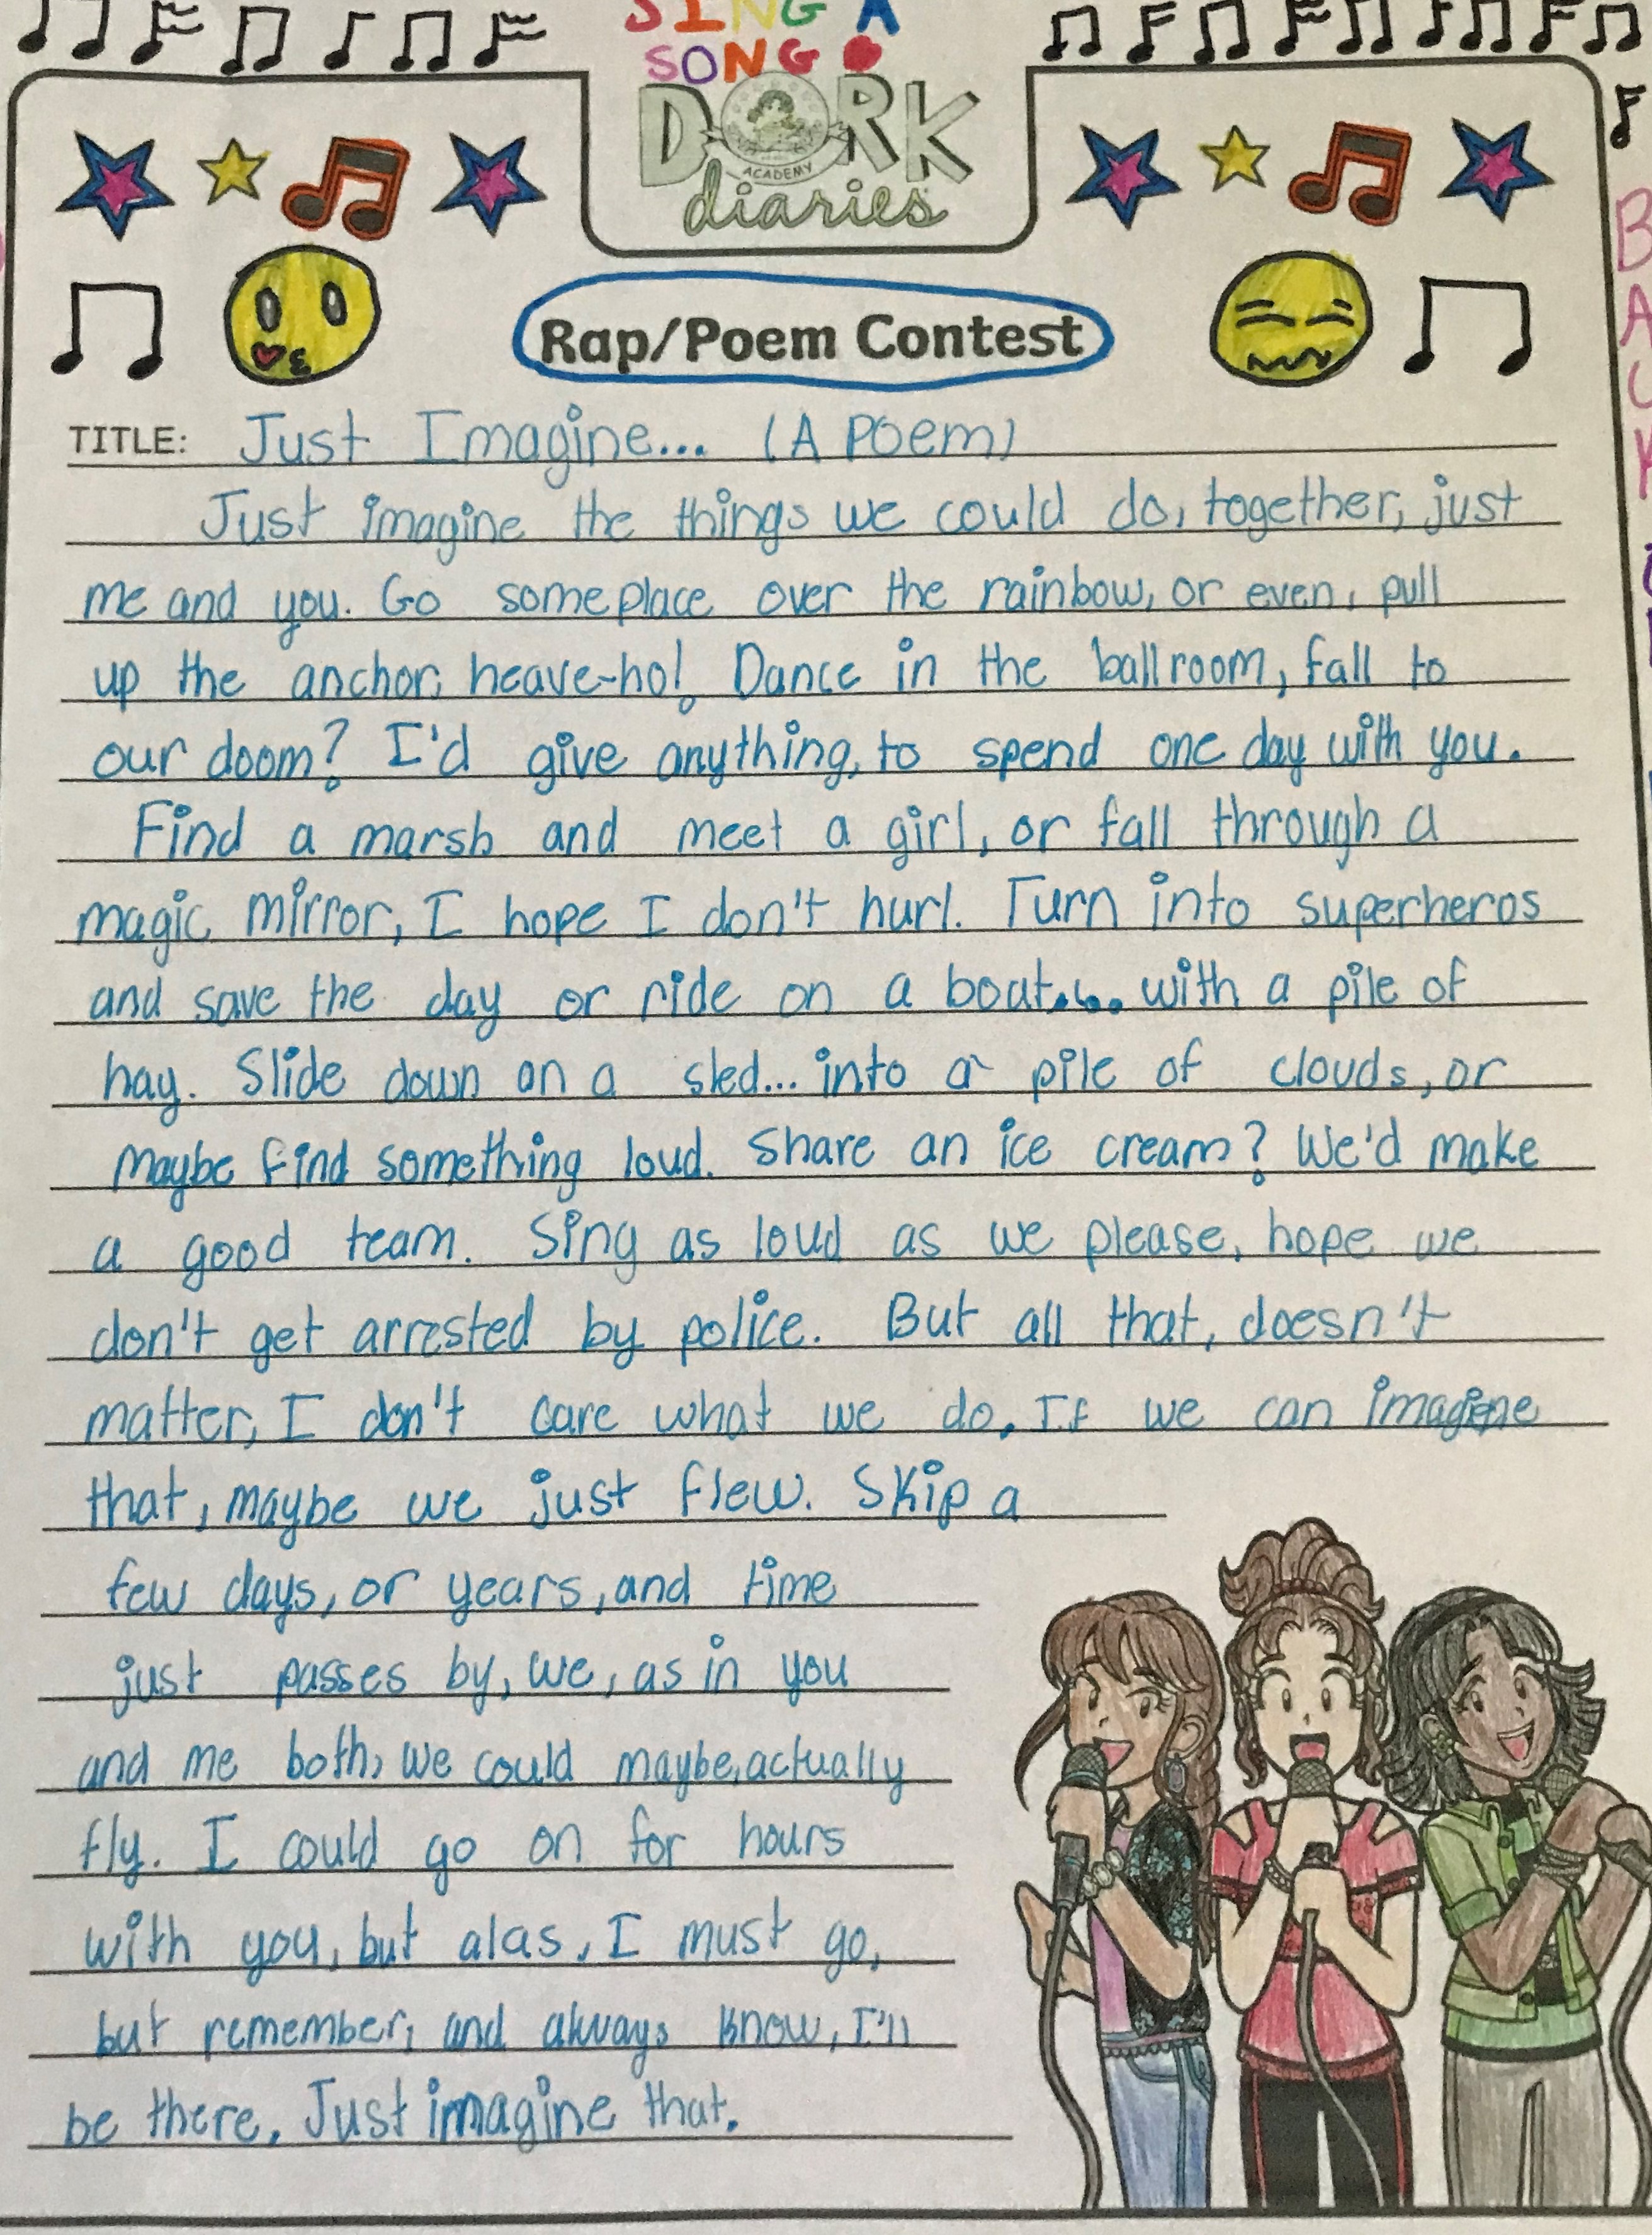 SING A
SONG
DORK
ACADEMY
diaries
Rap/Poem Contest
TITLE: Just Imagine... (A Poem)
Just imagine the things we could do, together, just
me and you. Go someplace over the rainbow, or even, pull
up the anchor, heave-ho! Dance in the ballroom, fall to
our doom? I'd give anything, to spend one day with you.
Find a marsh and meet a girl, or fall through a
magic mirror, I hope I don't hurl. Turn into superheros
and save the day or ride on a boat... with a pile of
hay. Slide down on a sled... into a pile of clouds, or
maybe find something loud. Share an ice cream? We'd make
a good team. Sing as loud as we please, hope we
don't get arrested by police. But all that, doesn't
matter, I don't care what we do. If we can imagine
that, maybe we just flew. Skip a
few days, or years, and time
just passes by, we, as in you
and me both, we could maybe, actually
fly. I could go on for hours
with you, but alas, I must go,
but remember, and always know, I'll
be there. Just imagine that.